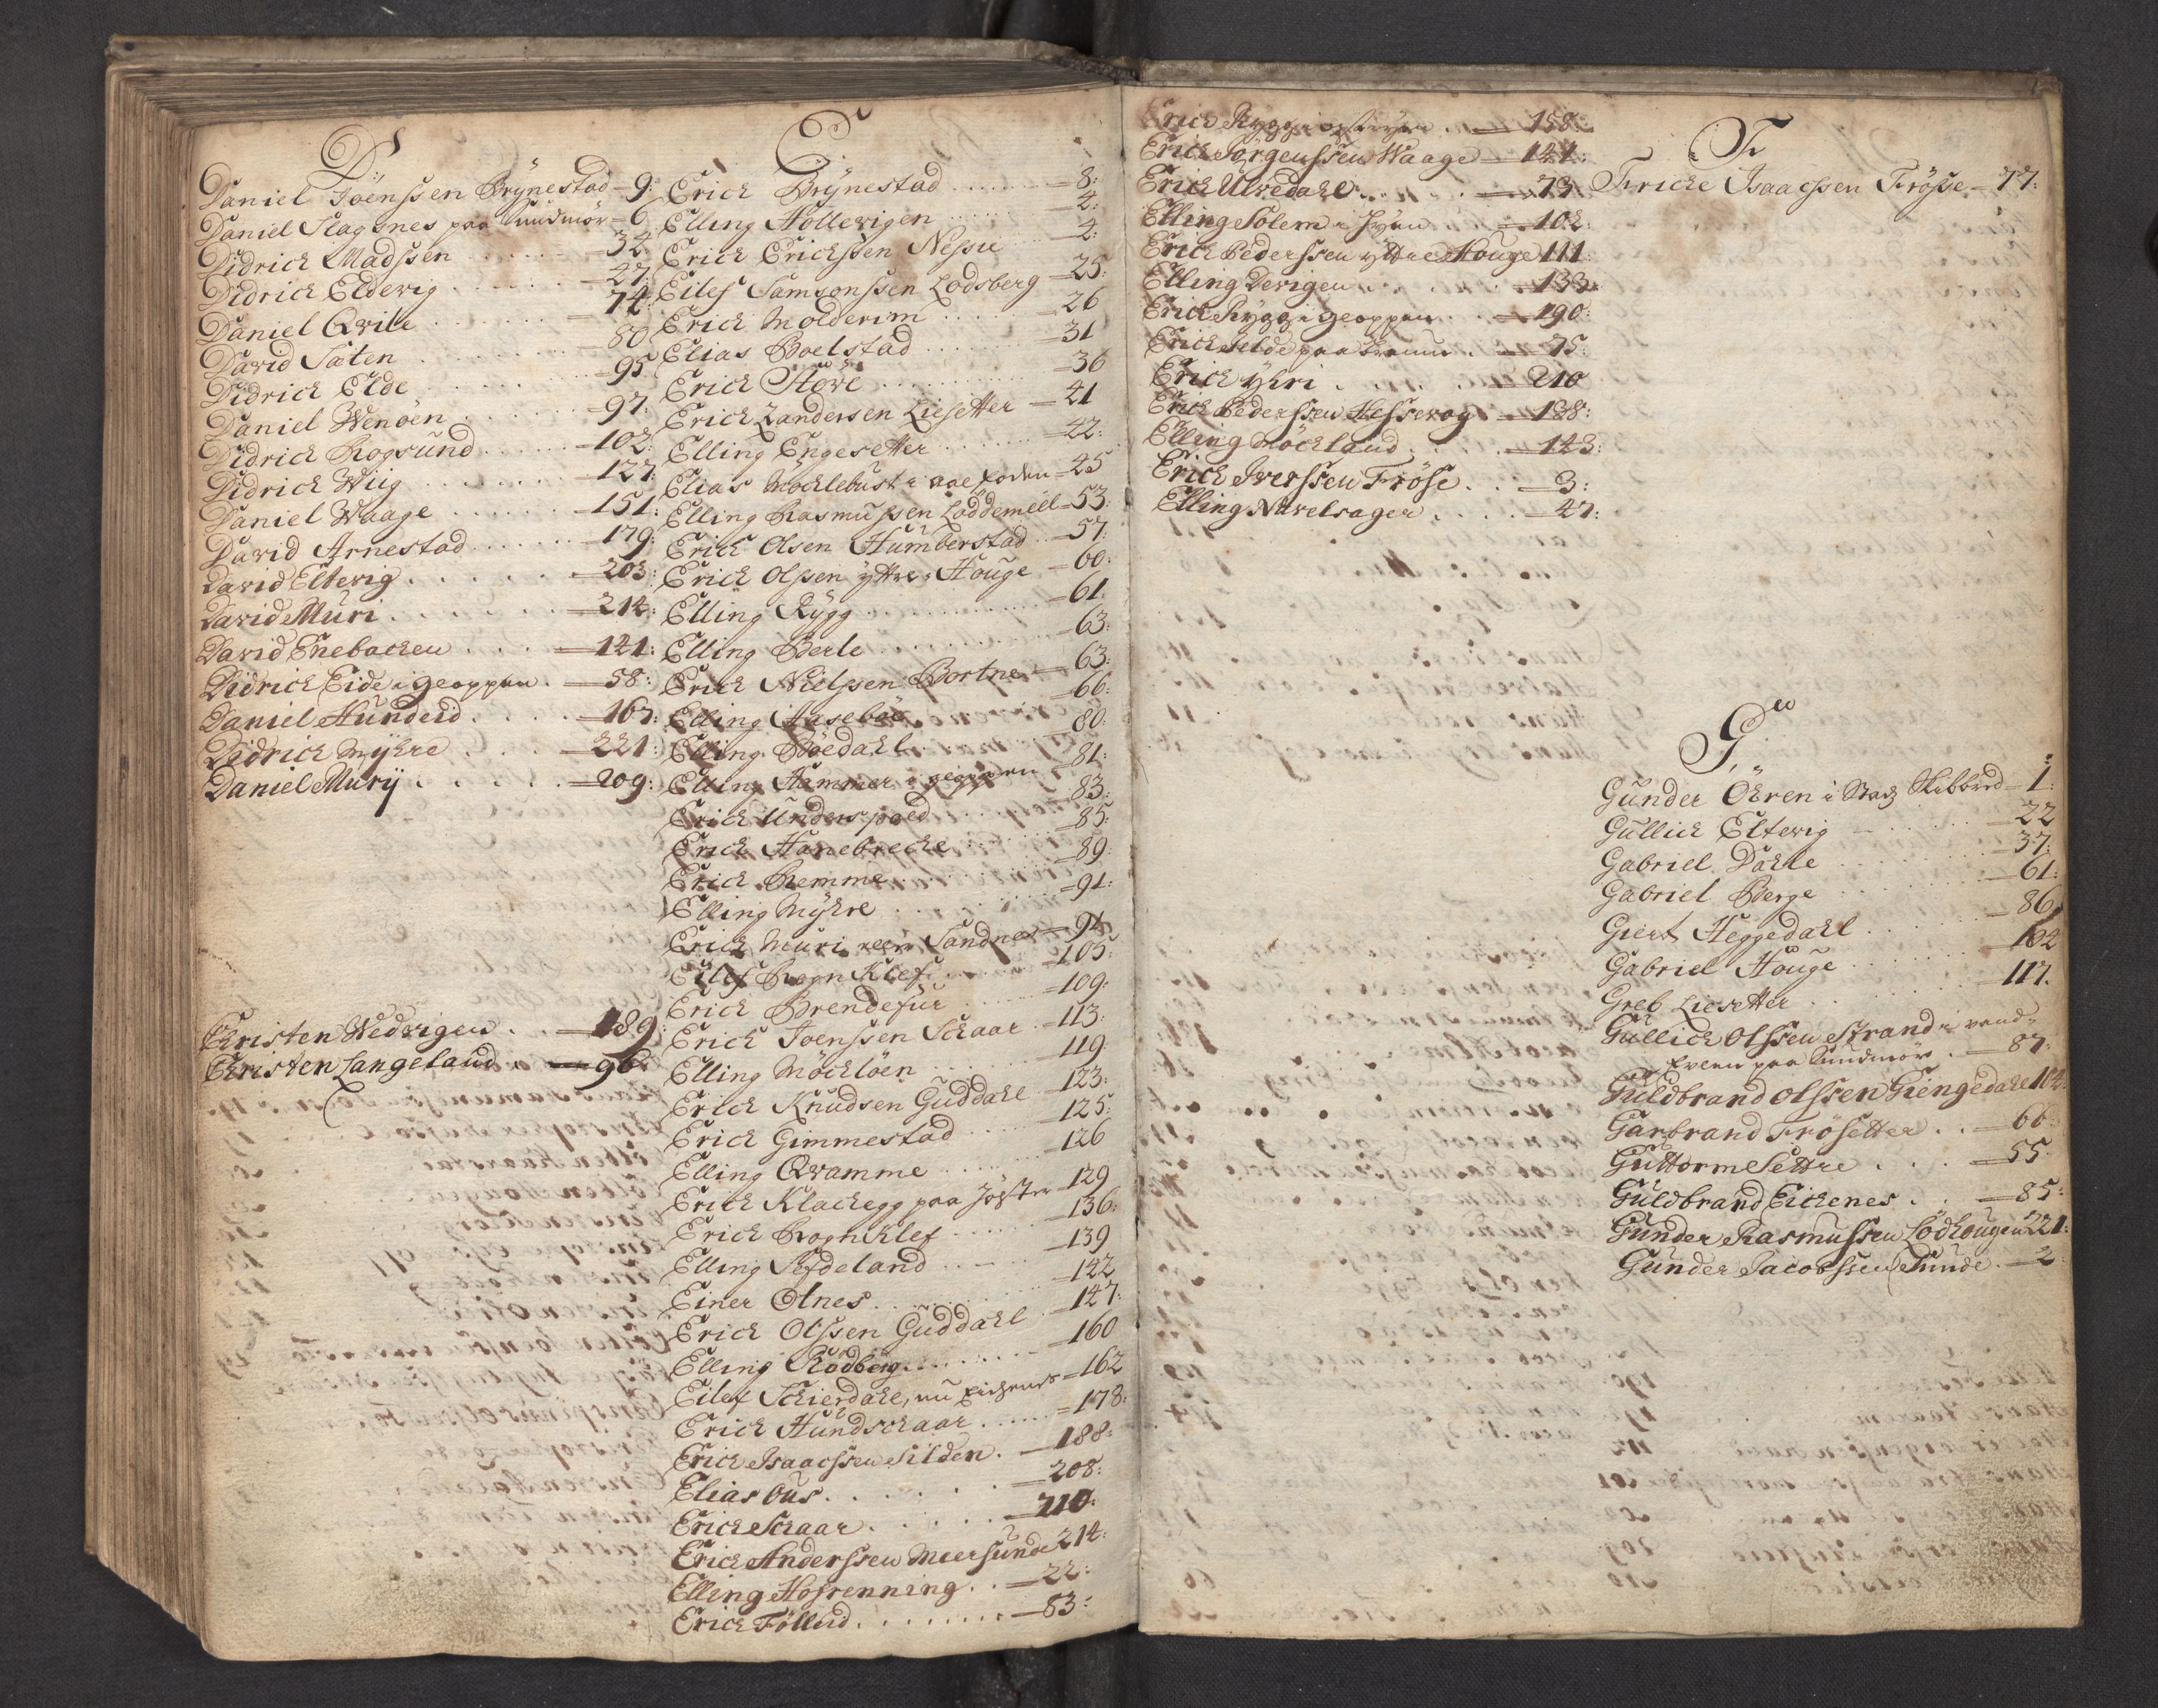 D
Daniel Joenssen Brynestad 9:
Daniel Slagsnes paa Sundmör 6
Didrich Madssen 34
Didrich Eldevig 27:
Daniel Qvile 74:
David Sæten 80
Didrich Eide 95
Daniel Wenöen 97:
Didrich Rogsund 102:
Didrich Wiig 127:
Daniel Waage 151:
David Arnestad 179:
David Eltevig 203:
David Muri 214:
David Enebacken 141:
Didrich Eide i Geoppen 58:
Daniel Hunderd 167:
Didrich Myhre 221:
Daniel Murij 209:
Christen Wedvigen 189:
Christen Langeland 96
E
Erich Brynestad 8:
Elling Hollevigen 2:
Erich Erichssen Nessie 4:
Eilef Samsonssen Lodsberg 25:
Erich Molderim 26
Elias Boelstad 31
Erich Störe 36
Erich Zandersen Liesetter 41
Elling Engesetter 42:
Elias Möchlebust i 45
Elling Rasmussen Loddemeel 53:
Erich Olsen Humberstad 57:
Erich Olssen yttre Houge 60:
Elling Rygg 61
Elling Berle 63:
Erich Nielssen Bortne 63:
Elling Aaseböe 66:
Elling Böedahl 80:
Elling Hammer i geoppen 81:
Erich Underspoed 83:
Erich Hanebrecke 85:
Erich Remme 89:
Elling Myhre 91:
Erich Muri Sandnes 94
Eilef RognKlef 105:
Erich Brendefur 109:
Erich Joenssen Schaar 113:
Elling Möchlöen 119
Erich Knudsen Guddahl 123:
Erich Gimmestad 125:
Elling Qvamme 126
Erich Klachegg paa Jölster 129
Erich RognKlef 136:
Elling Sefdeland 139
Einer Olnes 142
Erich Olssen Guddahl 147:
Elling Rödberg 160
Eilef Schierdahl, nu Eichenes 162
Erich Hundschaar 178:
Erich Isaachssen Silden 188:
Elias Ous 208:
Erich Schaar 210:
Erich Anderssen Meersund 214:
Elling Hofrenning 22:
Erich Föllied 83:
Erich Rygg i 158:
Erich Jörgenssen Waage 141:
Erich Ulvedahl 73
Elling Solem i 102:
Erich Pederssen yttre Houge 111:
Elling Devigen 133:
Erich Rygg i geoppen 190:
Erich Selde paa 75:
Erich Yhri 210
Erich Pederssen Hessevog 138:
Elling Möchland 143:
Erich Iverssen Fröse 3:
Elling Navelsager 47:
F
Friche Isaachssen Frösse 77:
G
Gunder Öhren i Stads Skibbred 1:
Gullich Eltevig 22
Gabriel Dahle 37:
Gabriel Berge 61:
Giert Heggedahl 86
Gabriel Houge 104
Greb Liesetter 117.
Gullich Olssen Strand i
paa Sundmör 87:
Guldbrand Olssen Giengedahl 104:
Garbrand Frösetter 66:
Guttorm Settre 55:
Guldbrand Eichenes 85:
Gunder Rasmussen Lödhougen 221:
Gunder Jacobssen Tunde 2